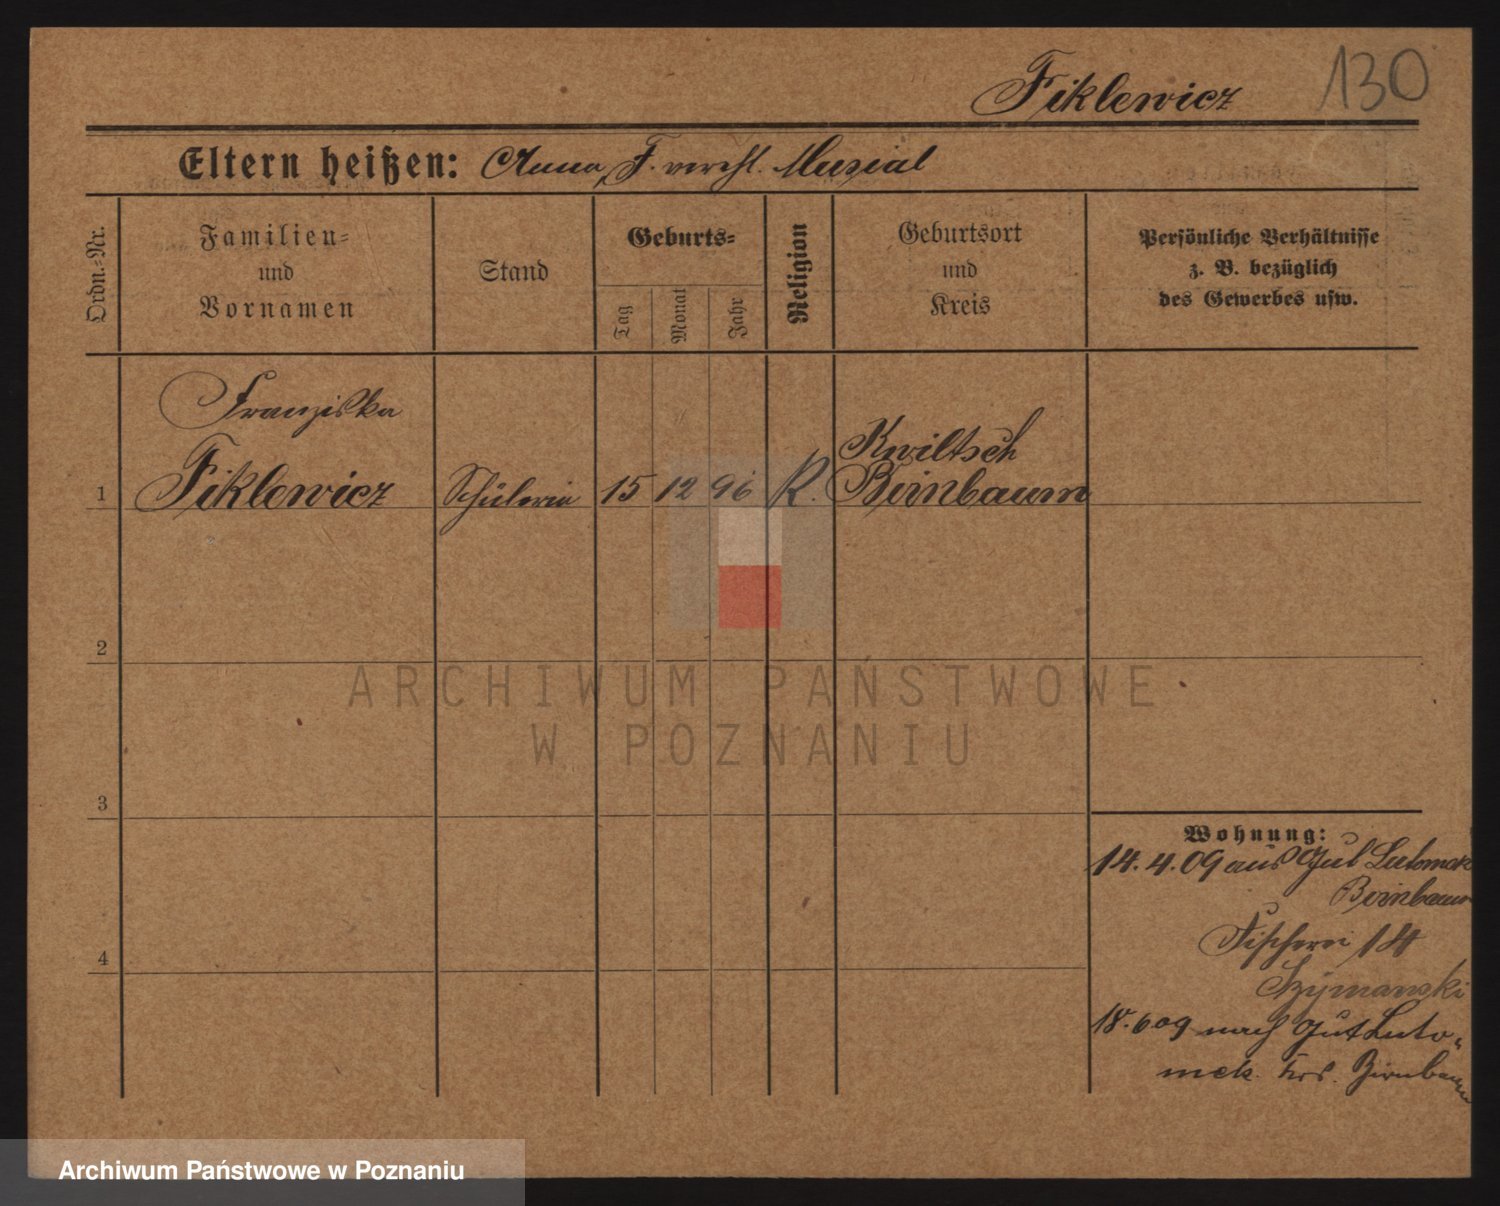 Fiklewicz 130
Eltern heißen: Anna, F. verehl. Musial
Ordn.-Nr.
Familien-
und
Vornamen
Stand
Geburts-
Tag
Monat
Jahr
Religion
Geburtsort
und
Kreis
Persönliche Verhältnisse
z. B. bezüglich
des Gewerbes usw.
Franziska
1 Fiklewicz Schülerin 15 12 96 K. Kwiltsch
Birnbaum
2
3
4
Wohnung:
14. 4. 09 aus Gut Lutomek
Birnbaum
Fischerei 14
Szymanski
18. 6 09 nach Gut Luto-
mek. Krs. Birnbaum
ARCHIWUM PAŃSTWOWE
W POZNANIU
Archiwum Państwowe w Poznaniu